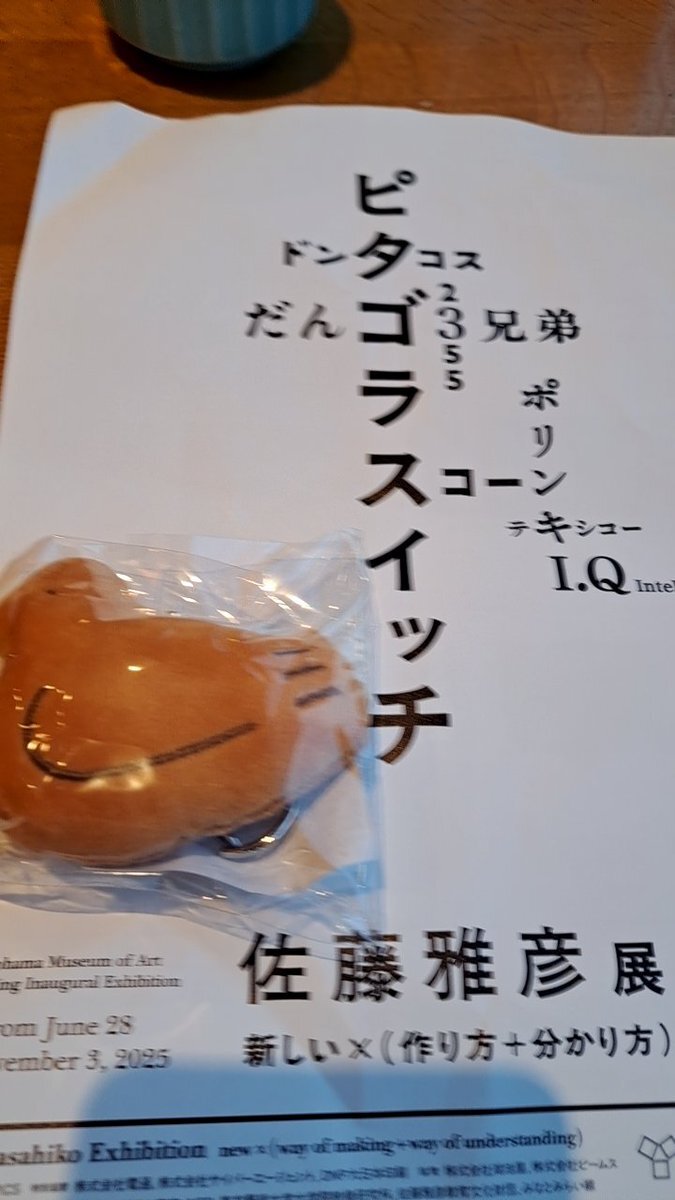 ピタゴラスイッチ
ドンタコス
だんご3兄弟
2355
ポリンキー
スコーン
テキシコー
I.Q Intel
佐藤雅彦展
新しい×(作り方+分かり方)
hama Museum of Art:
ing Inaugural Exhibition
rom June 28
vember 3, 2025
asahiko Exhibition new×(way of making+way of understanding)